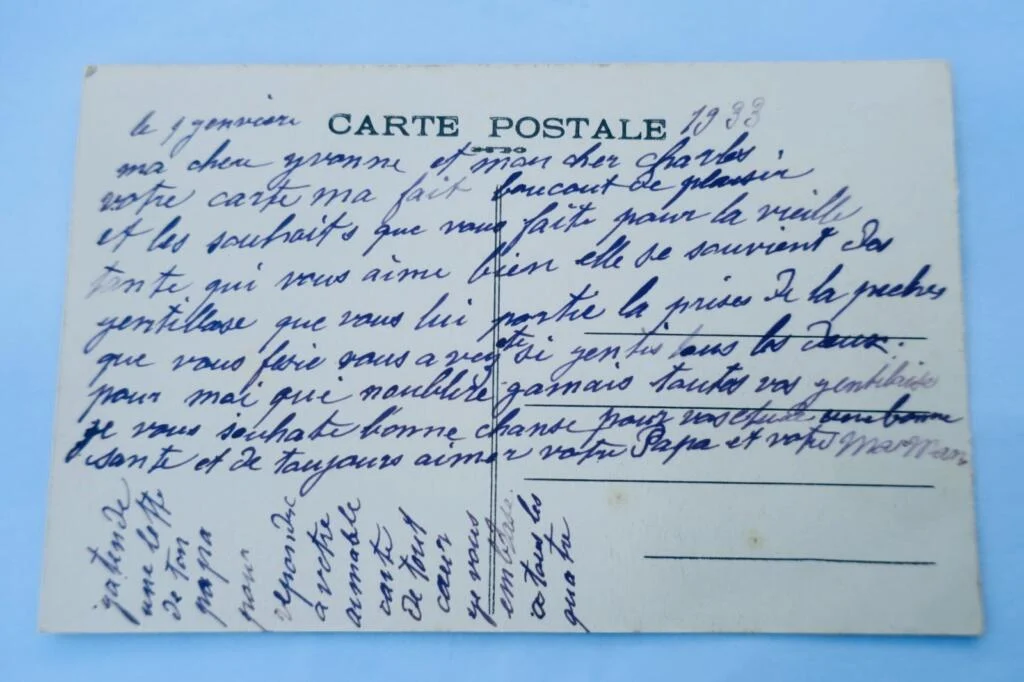 le 9 genviere CARTE POSTALE 1933
ma cher yvonne et mon cher charles
votre carte ma fait boucout de plaisir
et les souhaits que vous faite pour la vieille
tante qui vous aime bien elle se souvient des
gentillase que vous lui portie la prises de la peches
que vous ferie vous avez ete si gentis tous les deux.
pour moi qui noublire gamais toutes vos gentilaise
je vous souhate bonne chanse pour vos etude une bonne
sante et de toujours aimer votre Papa et votre MarMan
gatende
une lettre
de ton
papa
pour
repondre
a votre
aimable
carte
de tout
cœur
ge vous
embrase.
a tous les
quatre